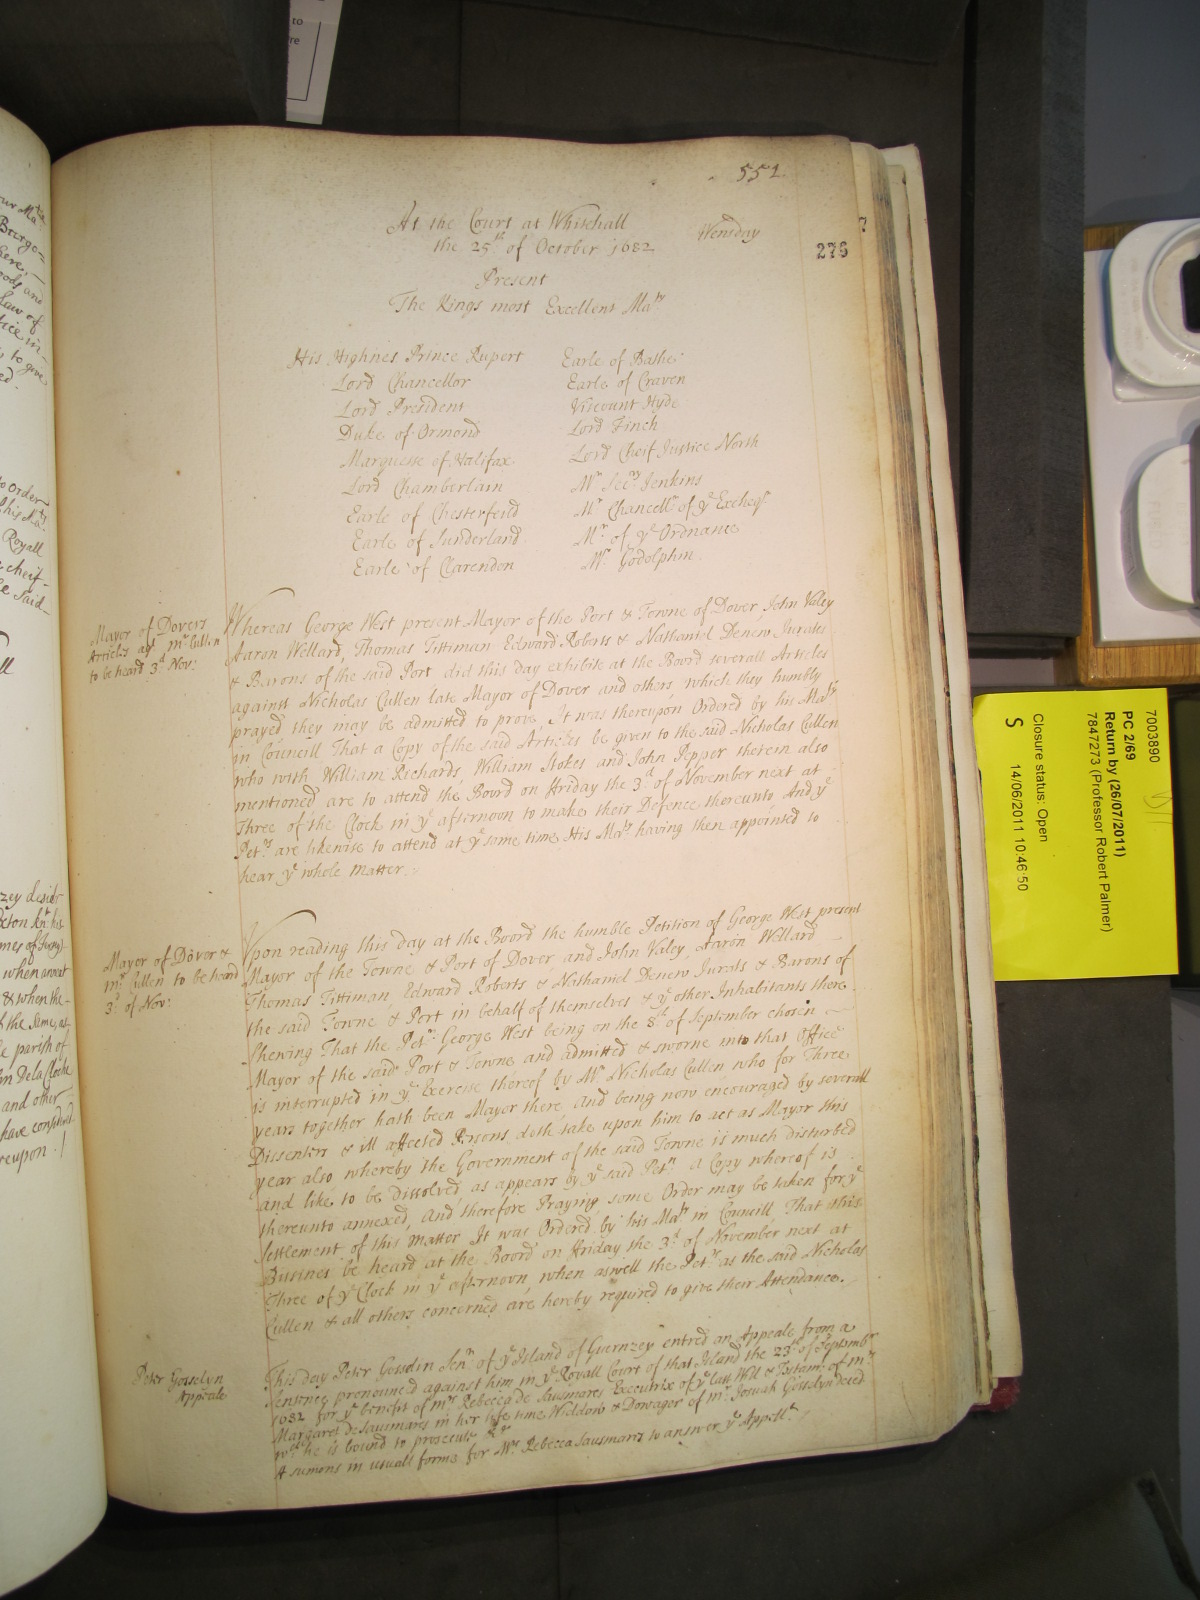 551
276
At the Court at Whitehall
the 25th of October 1682
Wensday
Present
The Kings most Excellent Maty
His Highnes Prince Rupert
Lord Chancellor
Lord President
Duke of Ormond
Marquesse of Halifax
Lord Chamberlain
Earle of Chesterfeild
Earle of Sunderland
Earle of Clarendon
Earle of Bathe
Earle of Craven
Viscount Hyde
Lord Finch
Lord Cheif Justice North
Mr Secry Jenkins
Mr Chancellr of ye Excheqr
Mr of ye Ordnance
Mr Godolphin
Mayor of Dovers
Articles agt Mr Cullen
to be heard 3d Nov:
Whereas George West present Mayor of the Port & Towne of Dover, John Valey
Aaron Wellard, Thomas Tittiman Edward Roberts & Nathaniel Denew Jurates
& Barons of the said Port did this day exhibite at the Board severall Articles
against Nicholas Cullen late Mayor of Dover and others, which they humbly
prayed they may be admitted to prove, It was thereupon Ordered by his Maty
in Councill That a Copy of the said Articles be given to the said Nicholas Cullen
who with William Richards, William Stokes and John Pepper therein also
mentioned are to attend the Board on Friday the 3d of November next at
Three of the Clock in ye afternoon to make their Defence thereunto And ye
Petrs are likewise to attend at ye same time, His Maty having then appointed to
hear ye whole Matter.
Mayor of Dover &
Mr Cullen to be heard
3d of Nov:
Vpon reading this day at the Board the humble Petition of George West present
Mayor of the Towne & Port of Dover, and John Valey, Aaron Willard
Thomas Tittiman, Edward Roberts & Nathaniel Denew Jurats & Barons of
the said Towne & Port in behalf of themselves & ye other Inhabitants there
Shewing That the Petr George West being on the 8th of September chosen
Mayor of the said Port & Towne and admitted & sworne into that Office
is interrupted in ye Exercise thereof by Mr Nicholas Cullen who for Three
years together hath been Mayor there, And being now encouraged by severall
Dissenters & ill affected Persons, doth take upon him to act as Mayor this
year also whereby the Government of the said Towne is much disturbed
and like to be dissolved, as appears by ye said Petn a Copy whereof is
thereunto annexed, And therefore Praying some Order may be taken for ye
settlement of this Matter It was Ordered by his Maty in Councill That this
Bussines be heard at the Board on Friday the 3d of November next at
Three of ye Clock in ye afternoon, when aswell the Petrs as the said Nicholas
Cullen & all others concerned are hereby required to give their Attendance.
Peter Gosselyn
Appeale
This day Peter Gosselin Senr of ye Island of Guernzey entred an Appeale from a
Sentence pronounced against him in ye Royall Court of that Island the 23th of Septembr
1682 for ye benefit of Mrs Rebecca de Sausmares Executrix of ye last Will & Testamt of Mrs
Margaret de Sausmares in her life time Widdow & Dowager of Mr Josuah Gosselyn deced
wch he is bound to prosecute &c
A sumons in usuall forme for Mrs Rebecca Sausmares to answer ye Appellt
7003890
PC 2/69
Return by (26/07/2011)
7847273 (Professor Robert Palmer)
Closure status: Open
S 14/06/2011 10:46:50